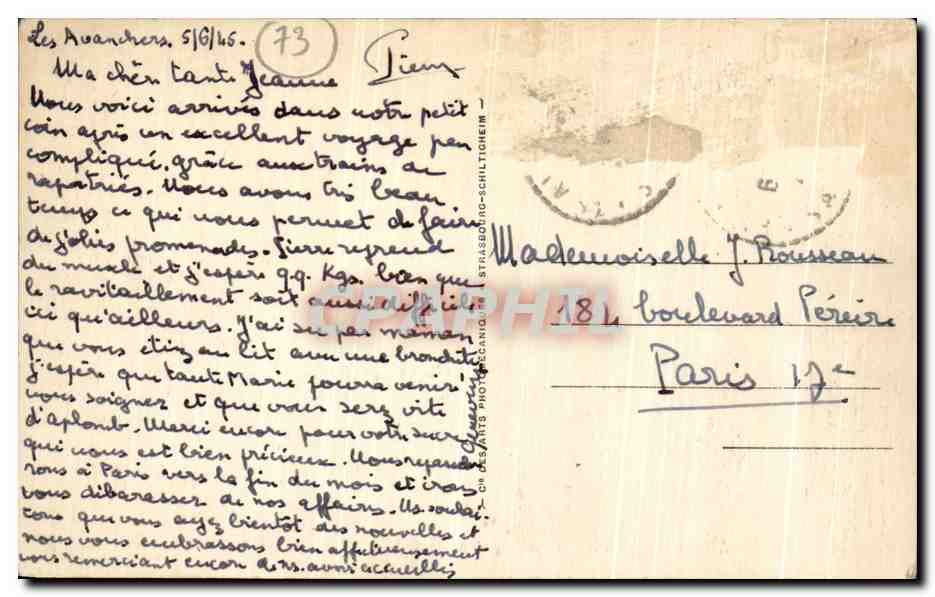 Les Avanchers. 5/6/45.
73
Pierre
Ma chère tante Jeanne
Nous voici arrivés dans notre petit
coin après un excellent voyage peu
compliqué, grâce aux trains de
rapatriés. Nous avons très beau
temps ce qui nous permet de faire
de jolies promenades. Pierre reprend
du muscle et j'espère q.q. Kgs. bien que
le ravitaillement soit aussi difficile
ici qu'ailleurs. J'ai su par maman
que vous étiez au lit avec une bronchite
j'espère que tante Marie pourra venir
vous soigner et que vous serez vite
d'aplomb. Merci encore pour votre sucre
qui nous est bien précieux. Nous repasse-
rons à Paris vers la fin du mois et irons
vous débarasser de nos affaires. Ns. souhai-
tons que vous ayez bientôt des nouvelles et
nous vous embrassons bien affectueusement
vous remerciant encore de ns. avoir accueillis
Geneviève
CIE DES ARTS PHOTOMÉCANIQUES STRASBOURG-SCHILTIGHEIM
Mademoiselle J. Rousseau
184 boulevard Péreire
Paris 17e
CPAPHIL